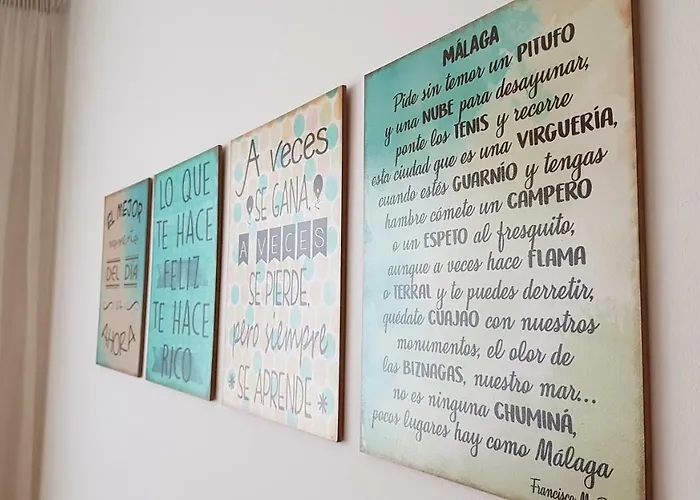 EL MEJOR
DEL DIA
ES
AHORA
LO QUE
TE HACE
FELIZ
TE HACE
RICO
A veces
SE GANA,
A VECES
SE PIERDE,
pero siempre
SE APRENDE
MÁLAGA
Pide sin temor un PITUFO
y una NUBE para desayunar,
ponte los TENIS y recorre
esta ciudad que es una VIRGUERÍA,
cuando estés GUARNÍO y tengas
hambre cómete un CAMPERO
o un ESPETO al fresquito,
aunque a veces hace FLAMA
o TERRAL y te puedes derretir,
quédate CUAJAO con nuestros
monumentos, el olor de
las BIZNAGAS, nuestro mar...
no es ninguna CHUMINÁ,
pocos lugares hay como Málaga
Francisco M.